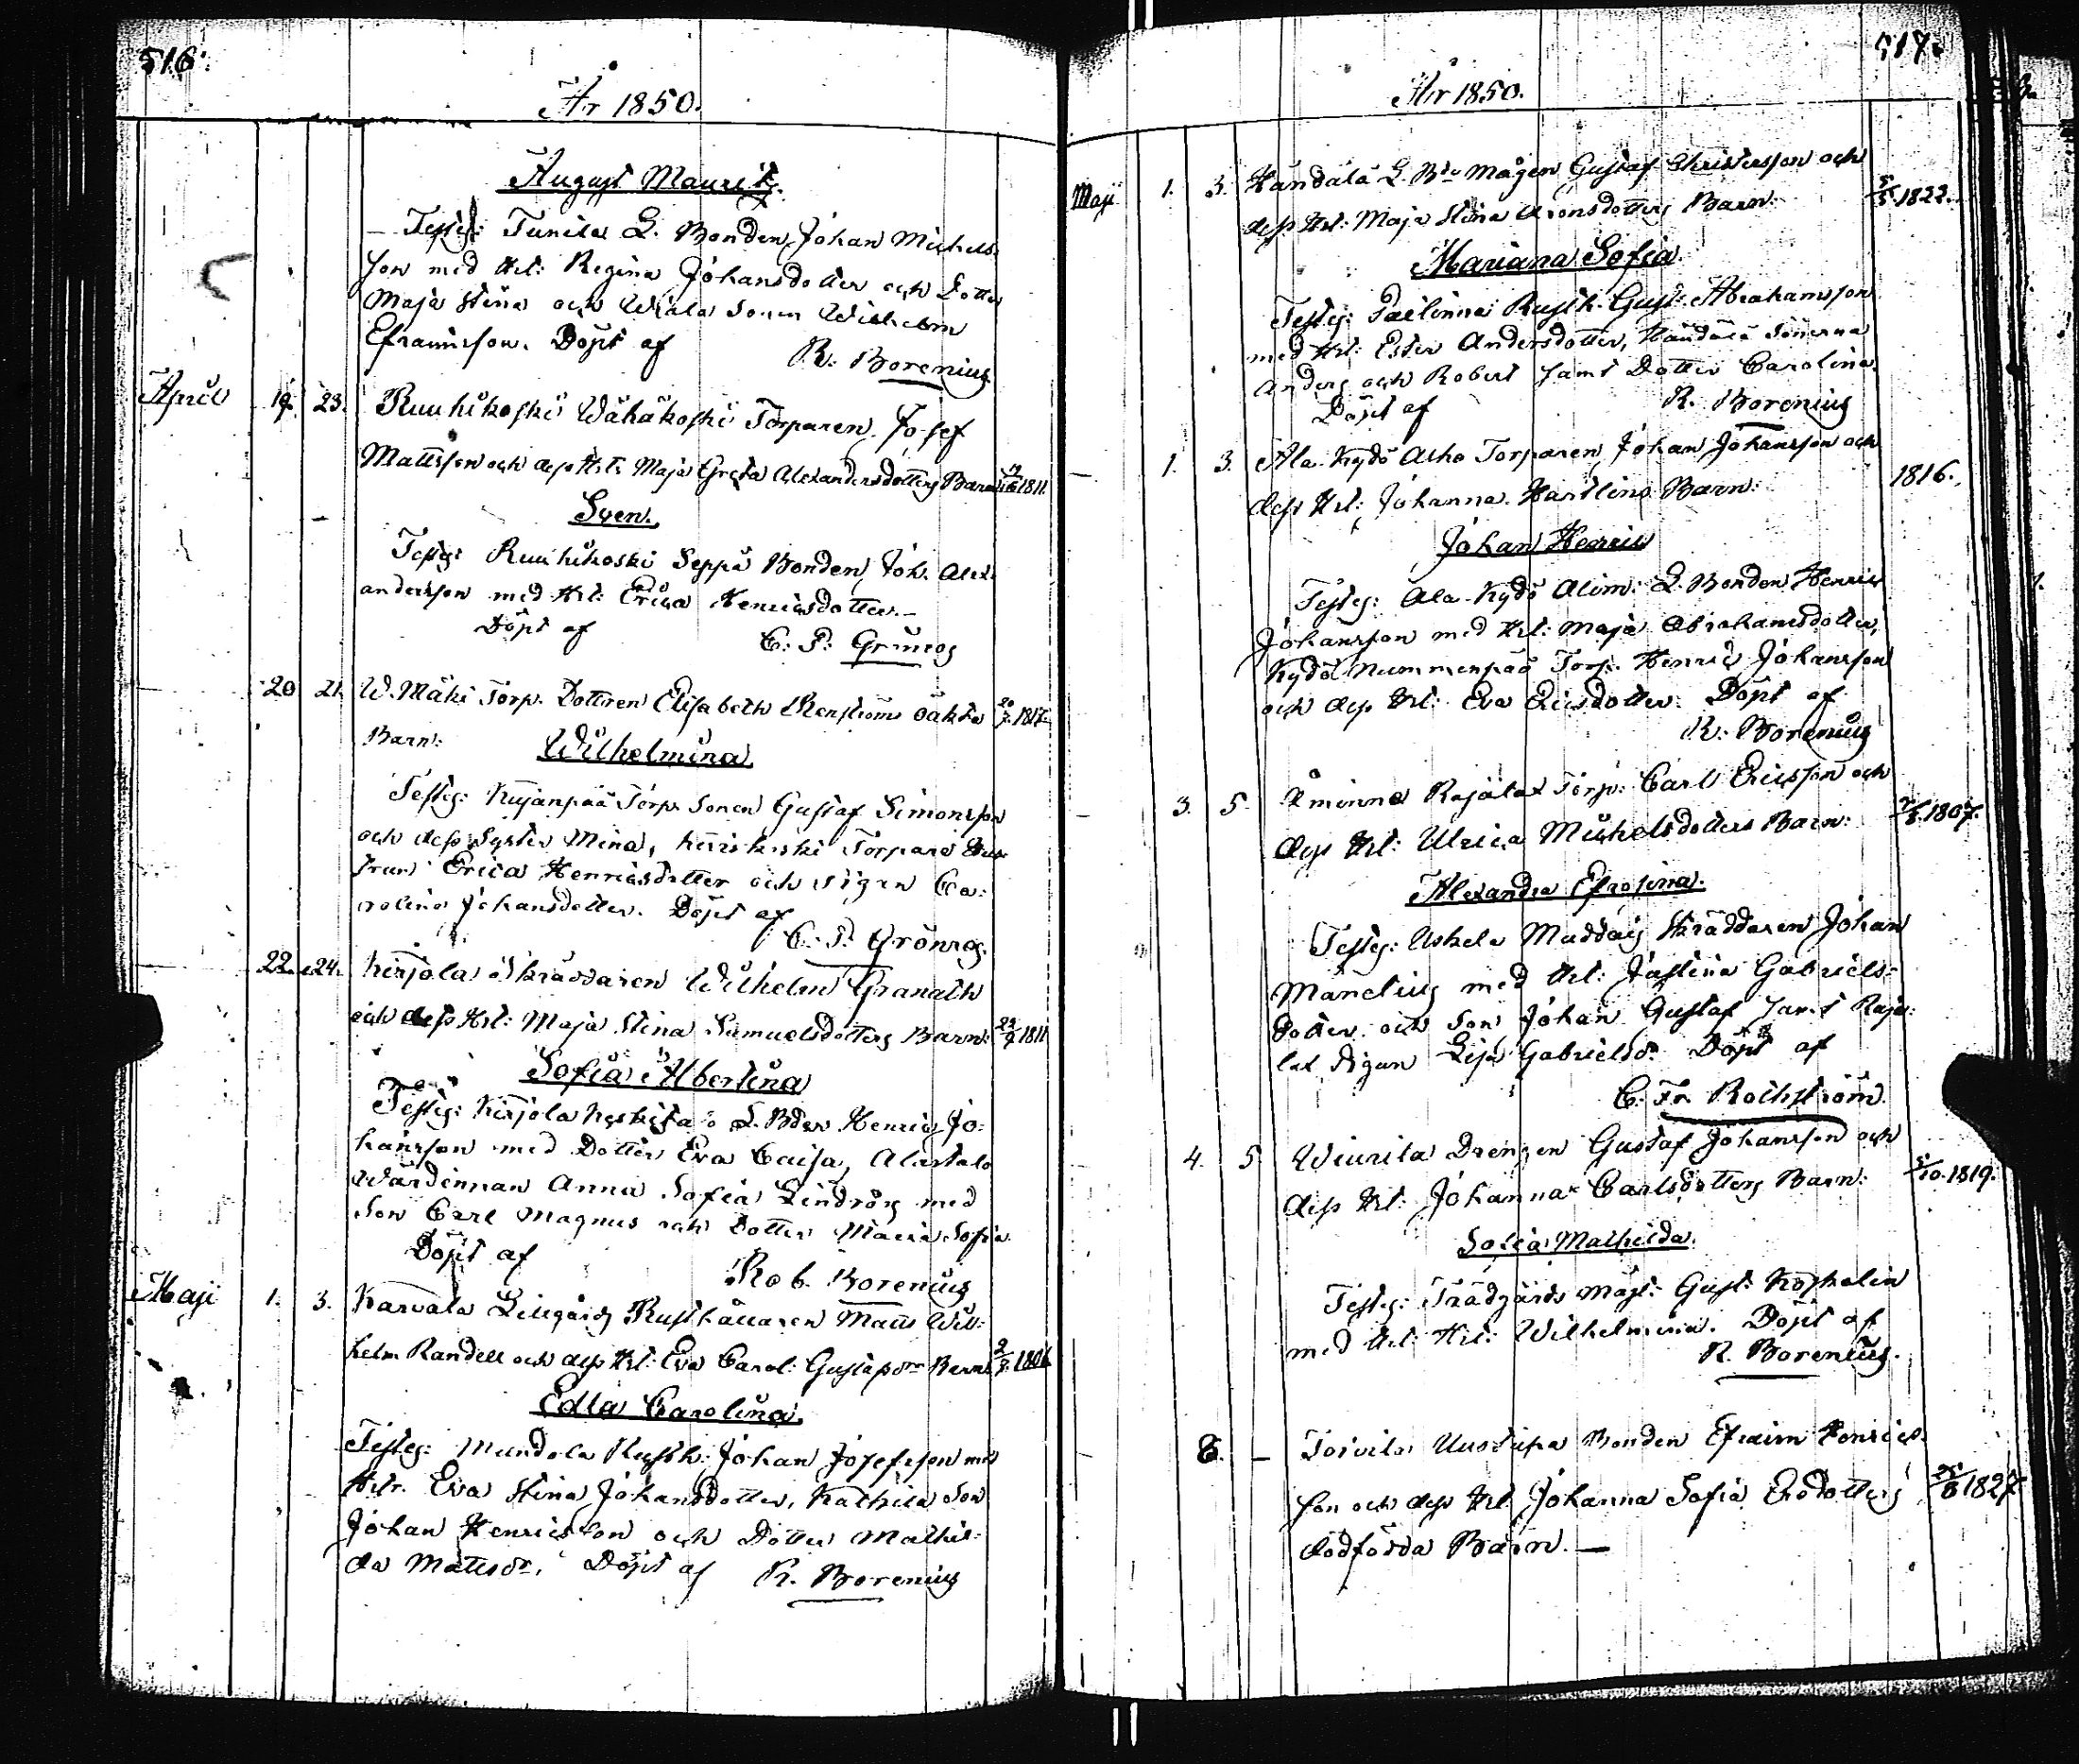 516.
År 1850.
August Mauritz.
Testes: Tunila L. Bonden Johan Michels-
son med Hst: Regina Johansdotter och Dotter
Maja Stina och Sonen Wilhelm
Efraimsson. Döpt af
R. Borenius
April 19. 23. Ruuhikoski Wähäkoski Torparen Josef
Mattsson och dess Hst: Maja Greta Alexandersdotters Barn: 1811.
Sven.
Testes: Ruuhikoski Seppä Bonden Joh. Alex-
andersson med Hst: Erica Henricsdotter.
Döpt af
C. P. Grönroos
20 21. W. Mäki Torp. Dottren Elisabeth Renström oäkta 1817.
Barn:
Wilhelmina.
Testes: Kujanpää Torp. Sonen Gustaf Simonsson
och dess Syster Mina, Torpare Hus-
trun Erica Henricsdotter och Pigan Ca-
rolina Johansdotter. Döpt af
C. P. Grönroos.
22. 24. Kirjola Skräddaren Wilhelm Granath
och dess Hst: Maja Stina Samuelsdotters Barn: 1811
Sofia Albertina
Testes: Kirjola Keskitalo L. Bden Henric Jo-
hansson med Dotter Eva Caisa, Alastalo
Wärdinnan Anna Sofia Lindroos med
Son Carl Magnus och Dotter Maria Sofia.
Döpt af
Rob. Borenius
Maji 1. 3. Karvala Lillegårds Rusthållaren Matts Wil-
helm Randell och dess Hst: Eva Carol: Gustafsdrs Barn: 1806
Edla Carolina.
Testes: Mundola Rusth: Johan Josefsson med
Hstr. Eva Stina Johansdotter, Son
Johan Henricsson och Dotter Mathil-
da Mattsdr. Döpt af R. Borenius
517.
År 1850.
Maji 1. 3. Händälä L. Bde Mågen Gustaf Christersson och
dess Hst: Maja Stina Aronsdotters Barn: 5/5 1822.
Mariana Sofia.
Testes: Pailinna Rusth. Gust. Abrahamsson
med Hst: Ester Andersdotter, Händälä Sönerna
Anders och Robert samt Dotter Carolina.
Döpt af
R. Borenius
1. 3. Ala-Kydö Torparen Johan Johansson och
dess Hst: Johanna Hartlins Barn: 1816.
Johan Henric
Testes: Ala-Kydö L. Bonden Henric
Johansson med Hst: Maja Abrahamsdotter,
Kydö Nummenpää Torp. Henric Johansson
och dess Hst: Eva Ericsdotter. Döpt af
R. Borenius
3. 5. Åminne Rajalat Torp: Carl Ericsson och
dess Hst: Ulrica Michelsdotters Barn: 1807.
Alexandra Efrosina.
Testes: Uskela Skräddaren Johan
Mandelius med Hst: Justina Gabriels-
dotter och Son Johan Gustaf samt Raja-
lat Pigan Lisa Gabrielsdr. Döpt af
C. Fr. Rothström.
4. 5 Wiurila Drengen Gustaf Johansson och
dess Hst: Johanna Carlsdotters Barn: 5/10. 1819.
Sofia Mathilda.
Testes: Trädgårds Mäst: Gust. Koskelin
med Hst: Wilhelmina. Döpt af
R. Borenius.
6. — Toivila Uusitupa Bonden Efraim Henrics-
son och dess Hst: Johanna Sofia Ersdotters 1827
dödfödda Barn. —